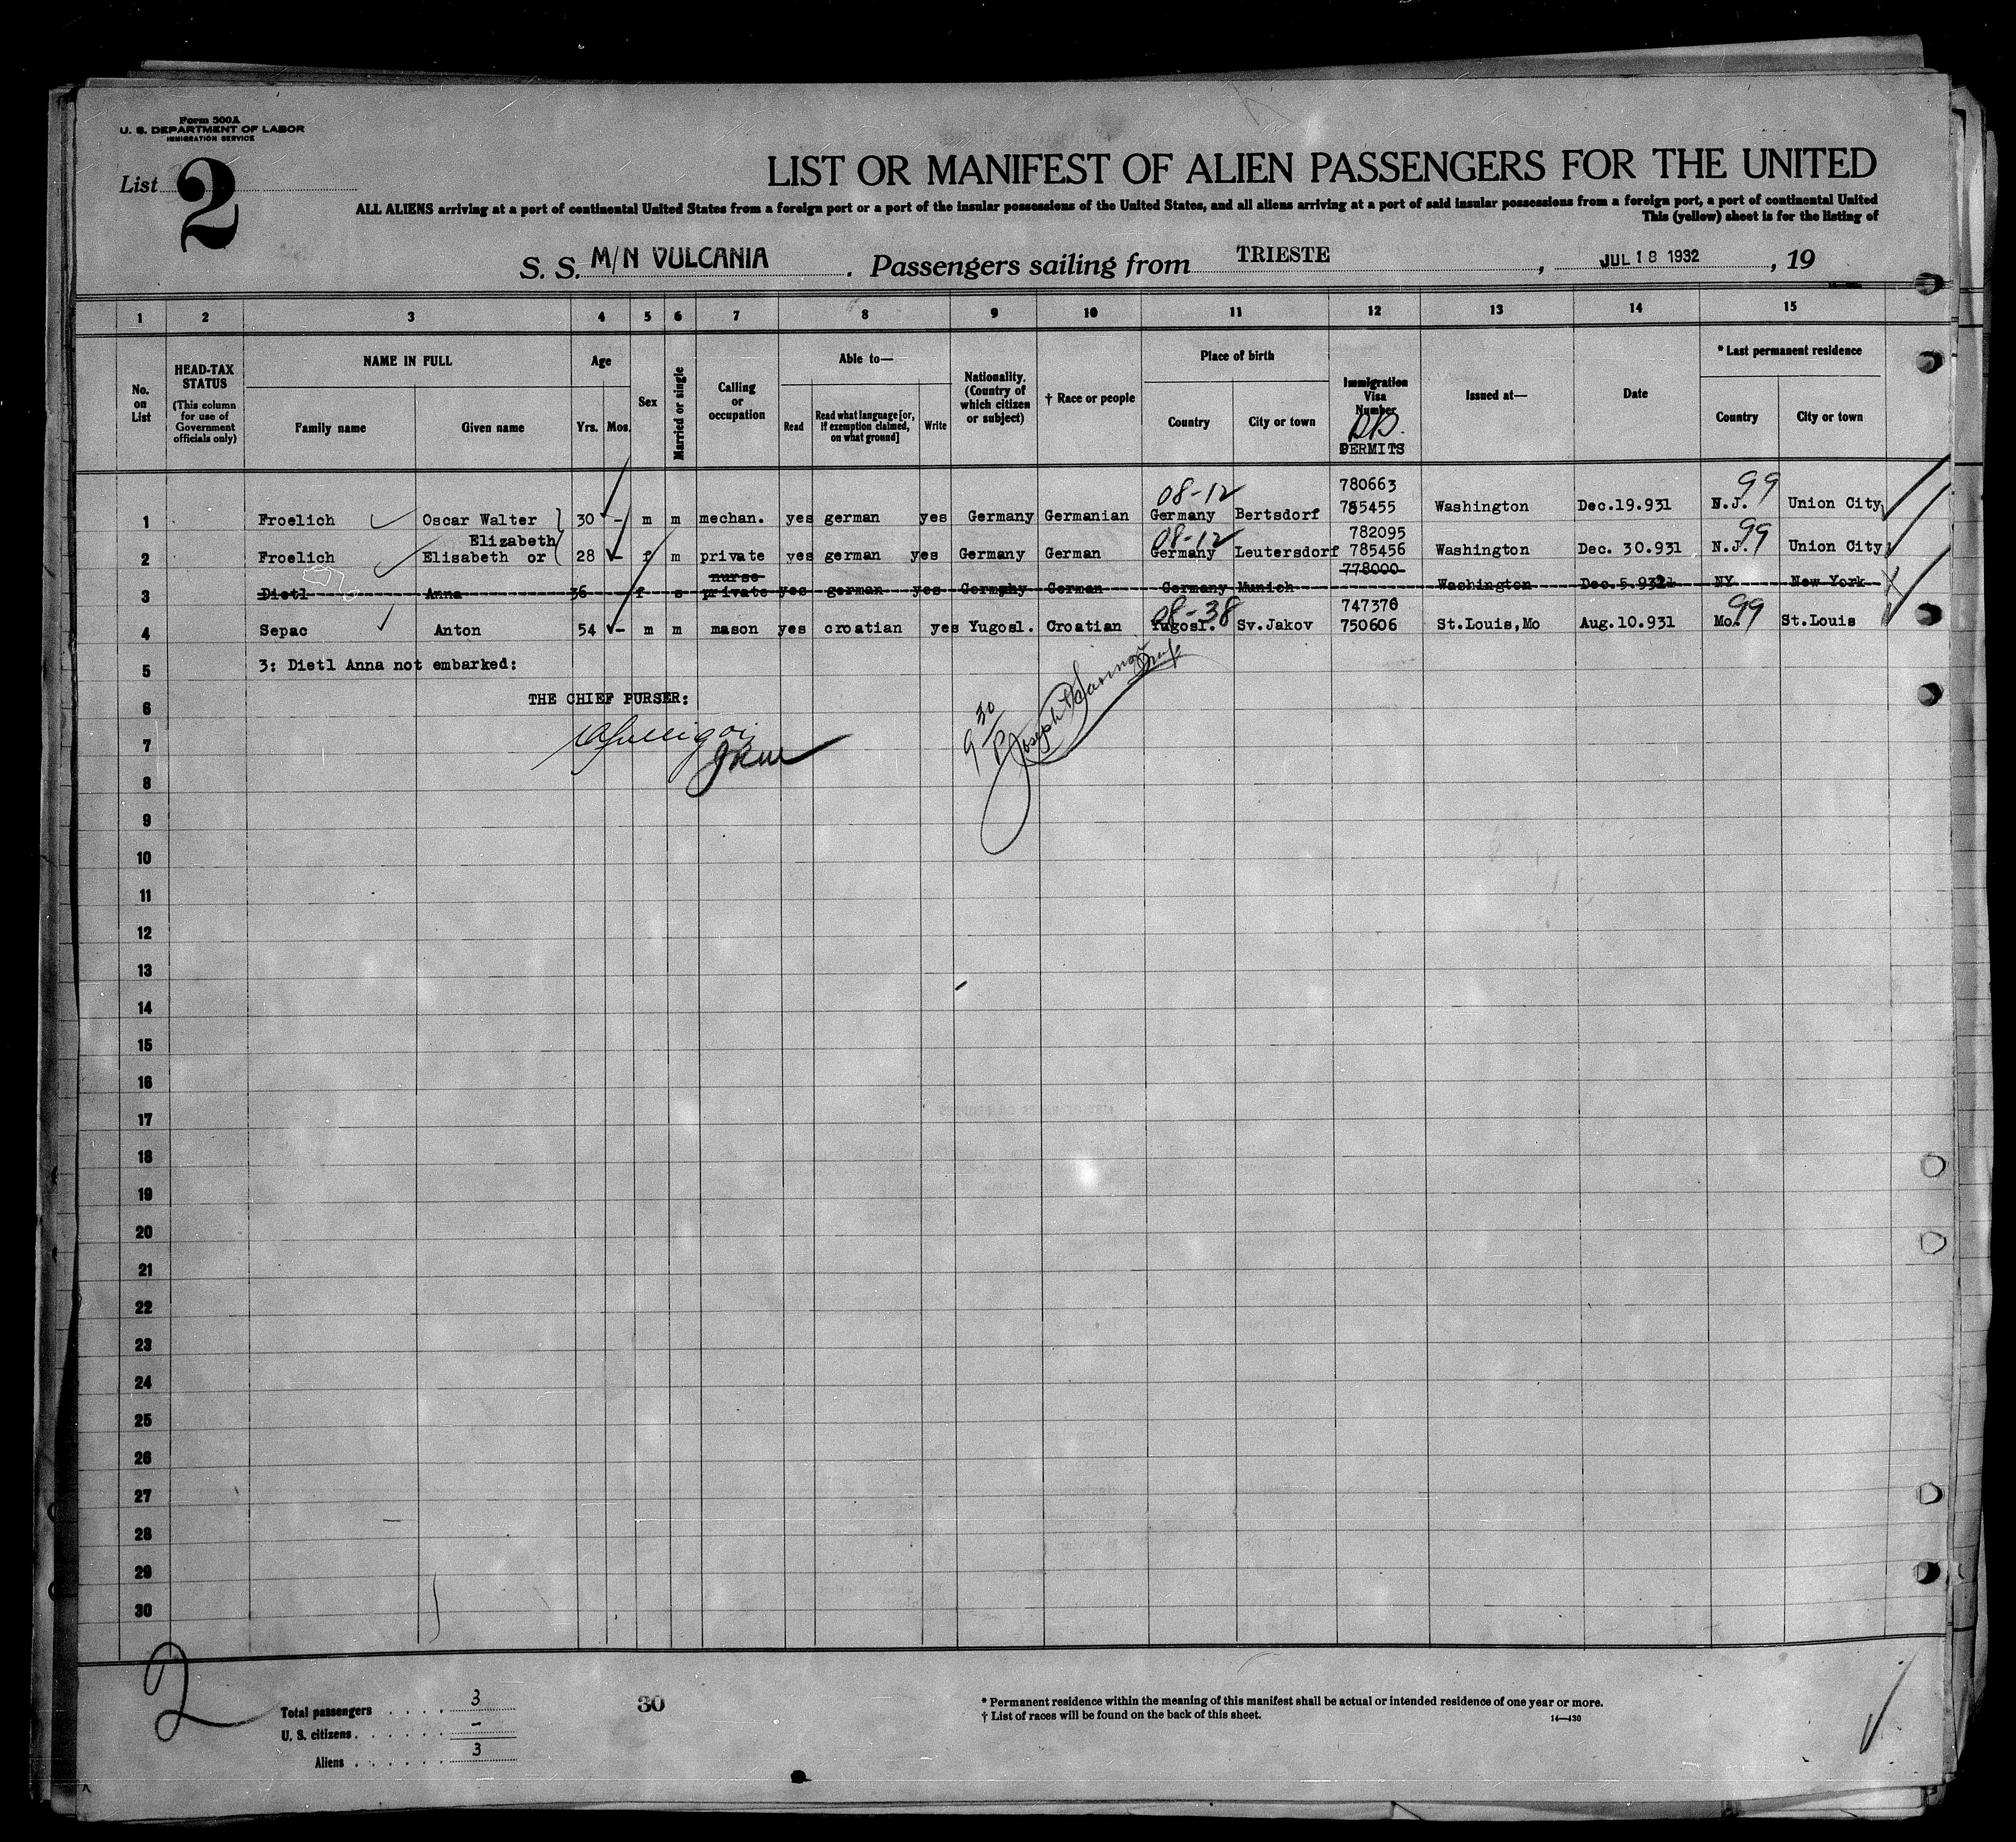 Form 500A
U. S. DEPARTMENT OF LABOR
IMMIGRATION SERVICE
List 2
LIST OR MANIFEST OF ALIEN PASSENGERS FOR THE UNITED
ALL ALIENS arriving at a port of continental United States from a foreign port or a port of the insular possessions of the United States, and all aliens arriving at a port of said insular possessions from a foreign port, a port of continental United
This (yellow) sheet is for the listing of
S. S. M/N VULCANIA . Passengers sailing from TRIESTE , JUL 18 1932 , 19
1 2 3 4 5 6 7 8 9 10 11 12 13 14 15
No. on List
HEAD-TAX STATUS
(This column for use of Government officials only)
NAME IN FULL
Family name Given name
Age
Yrs. Mos.
Sex
Married or single
Calling or occupation
Able to—
Read Read what language [or, if exemption claimed, on what ground] Write
Nationality. (Country of which citizen or subject)
† Race or people
Place of birth
Country City or town
Immigration Visa Number
PERMITS
Issued at—
Date
* Last permanent residence
Country City or town
780663
08-12 99
1 Froelich Oscar Walter 30 - m m mechan. yes german yes Germany Germanian Germany Bertsdorf 785455 Washington Dec.19.931 N.J. Union City
Elizabeth 08-12 782095 99
2 Froelich Elisabeth or 28 - f m private yes german yes Germany German Germany Leutersdorf 785456 Washington Dec. 30.931 N.J. Union City
nurse 778000
3 Dietl Anna 36 f s private yes german yes Germany German Germany Munich Washington Dec.5.931 NY New York
08-38 747376 99
4 Sepac Anton 54 - m m mason yes croatian yes Yugosl. Croatian Yugosl. Sv.Jakov 750606 St.Louis,Mo Aug.10.931 Mo. St.Louis
5 3: Dietl Anna not embarked:
6 THE CHIEF PURSER:
7
8
9
10
11
12
13
14
15
16
17
18
19
20
21
22
23
24
25
26
27
28
29
30
2
Total passengers . . . . 3
U. S. citizens . . . . . . -
Aliens . . . . . . 3
30
* Permanent residence within the meaning of this manifest shall be actual or intended residence of one year or more.
† List of races will be found on the back of this sheet.
14—430